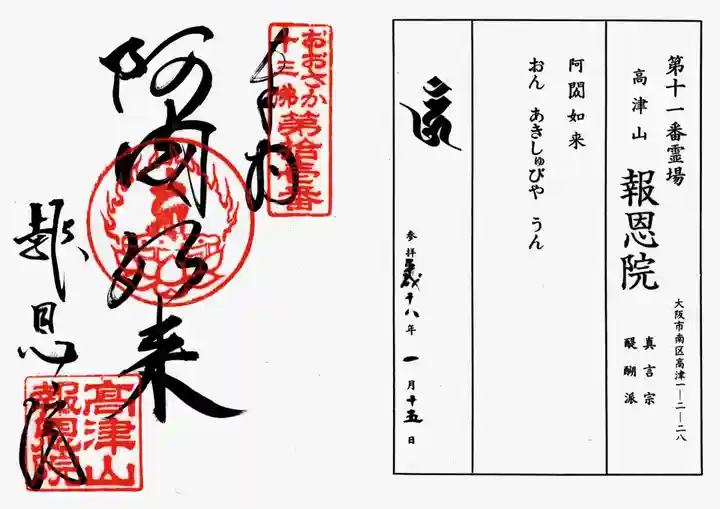 第十一番霊場
高津山
報恩院
大阪市南区高津一―二―二八
真言宗
醍醐派
阿閦如来
おん あきしゅびや うん
参拝平成十八年一月十五日
おおさか
十三佛
第拾壱番
奉拝
阿閦如来
報恩院
高津山
報恩院